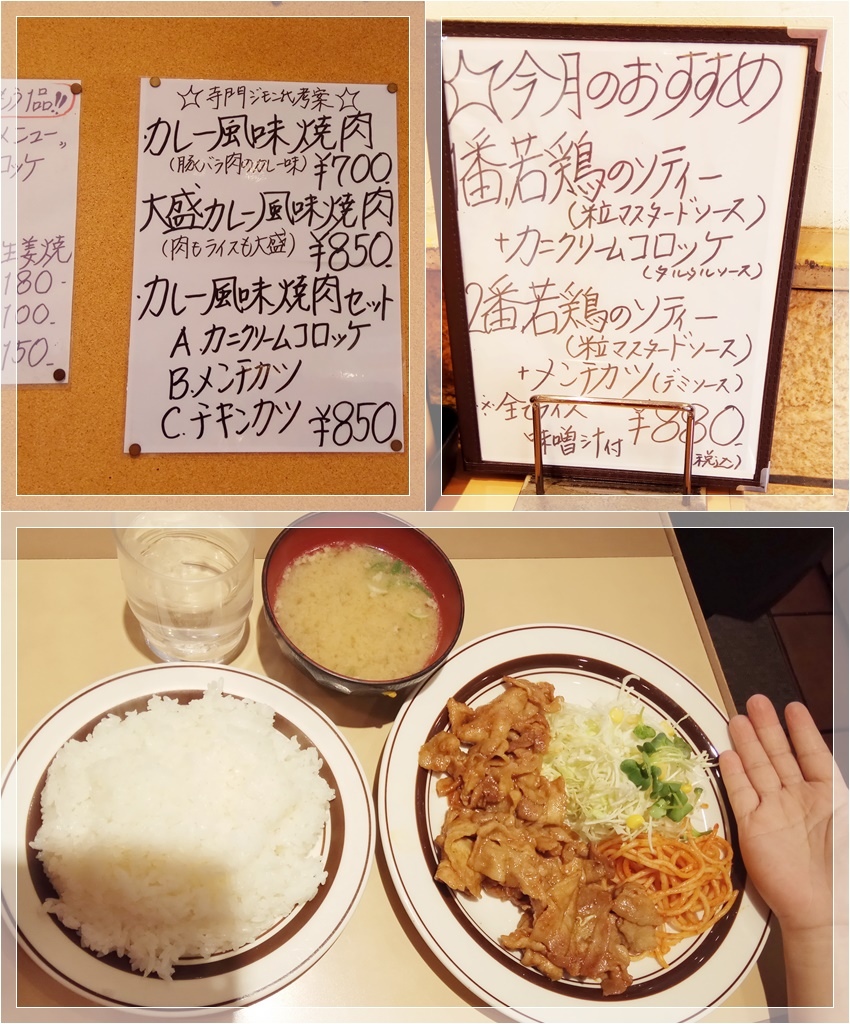 もう1品!!
メニュー
ロッケ
生姜焼
180-
100-
150-
☆寺門ジモン氏考案☆
・カレー風味焼肉
(豚バラ肉のカレー味) ¥700-
大盛カレー風味焼肉
(肉もライスも大盛) ¥850-
・カレー風味焼肉セット
A.カニクリームコロッケ
B.メンチカツ
C.チキンカツ ¥850-
☆今月のおすすめ
1番.若鶏のソティー
(粒マスタードソース)
+カニクリームコロッケ
(タルタルソース)
2番.若鶏のソティー
(粒マスタードソース)
+メンチカツ(デミソース)
※全てライス ¥880-
味噌汁付 (税込)